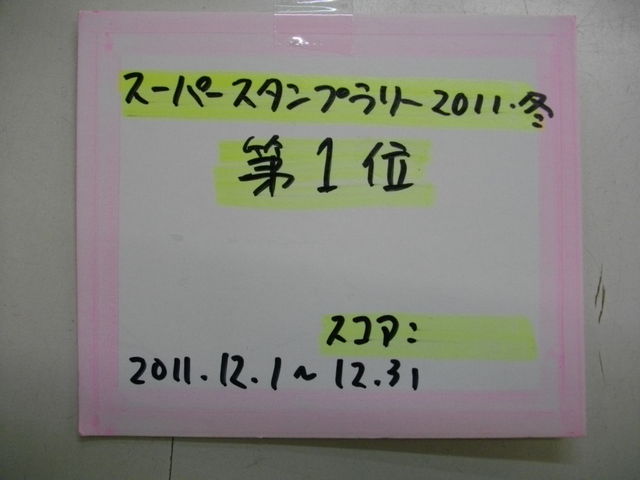 スーパースタンプラリー2011・冬
第1位
スコア:
2011.12.1～12.31